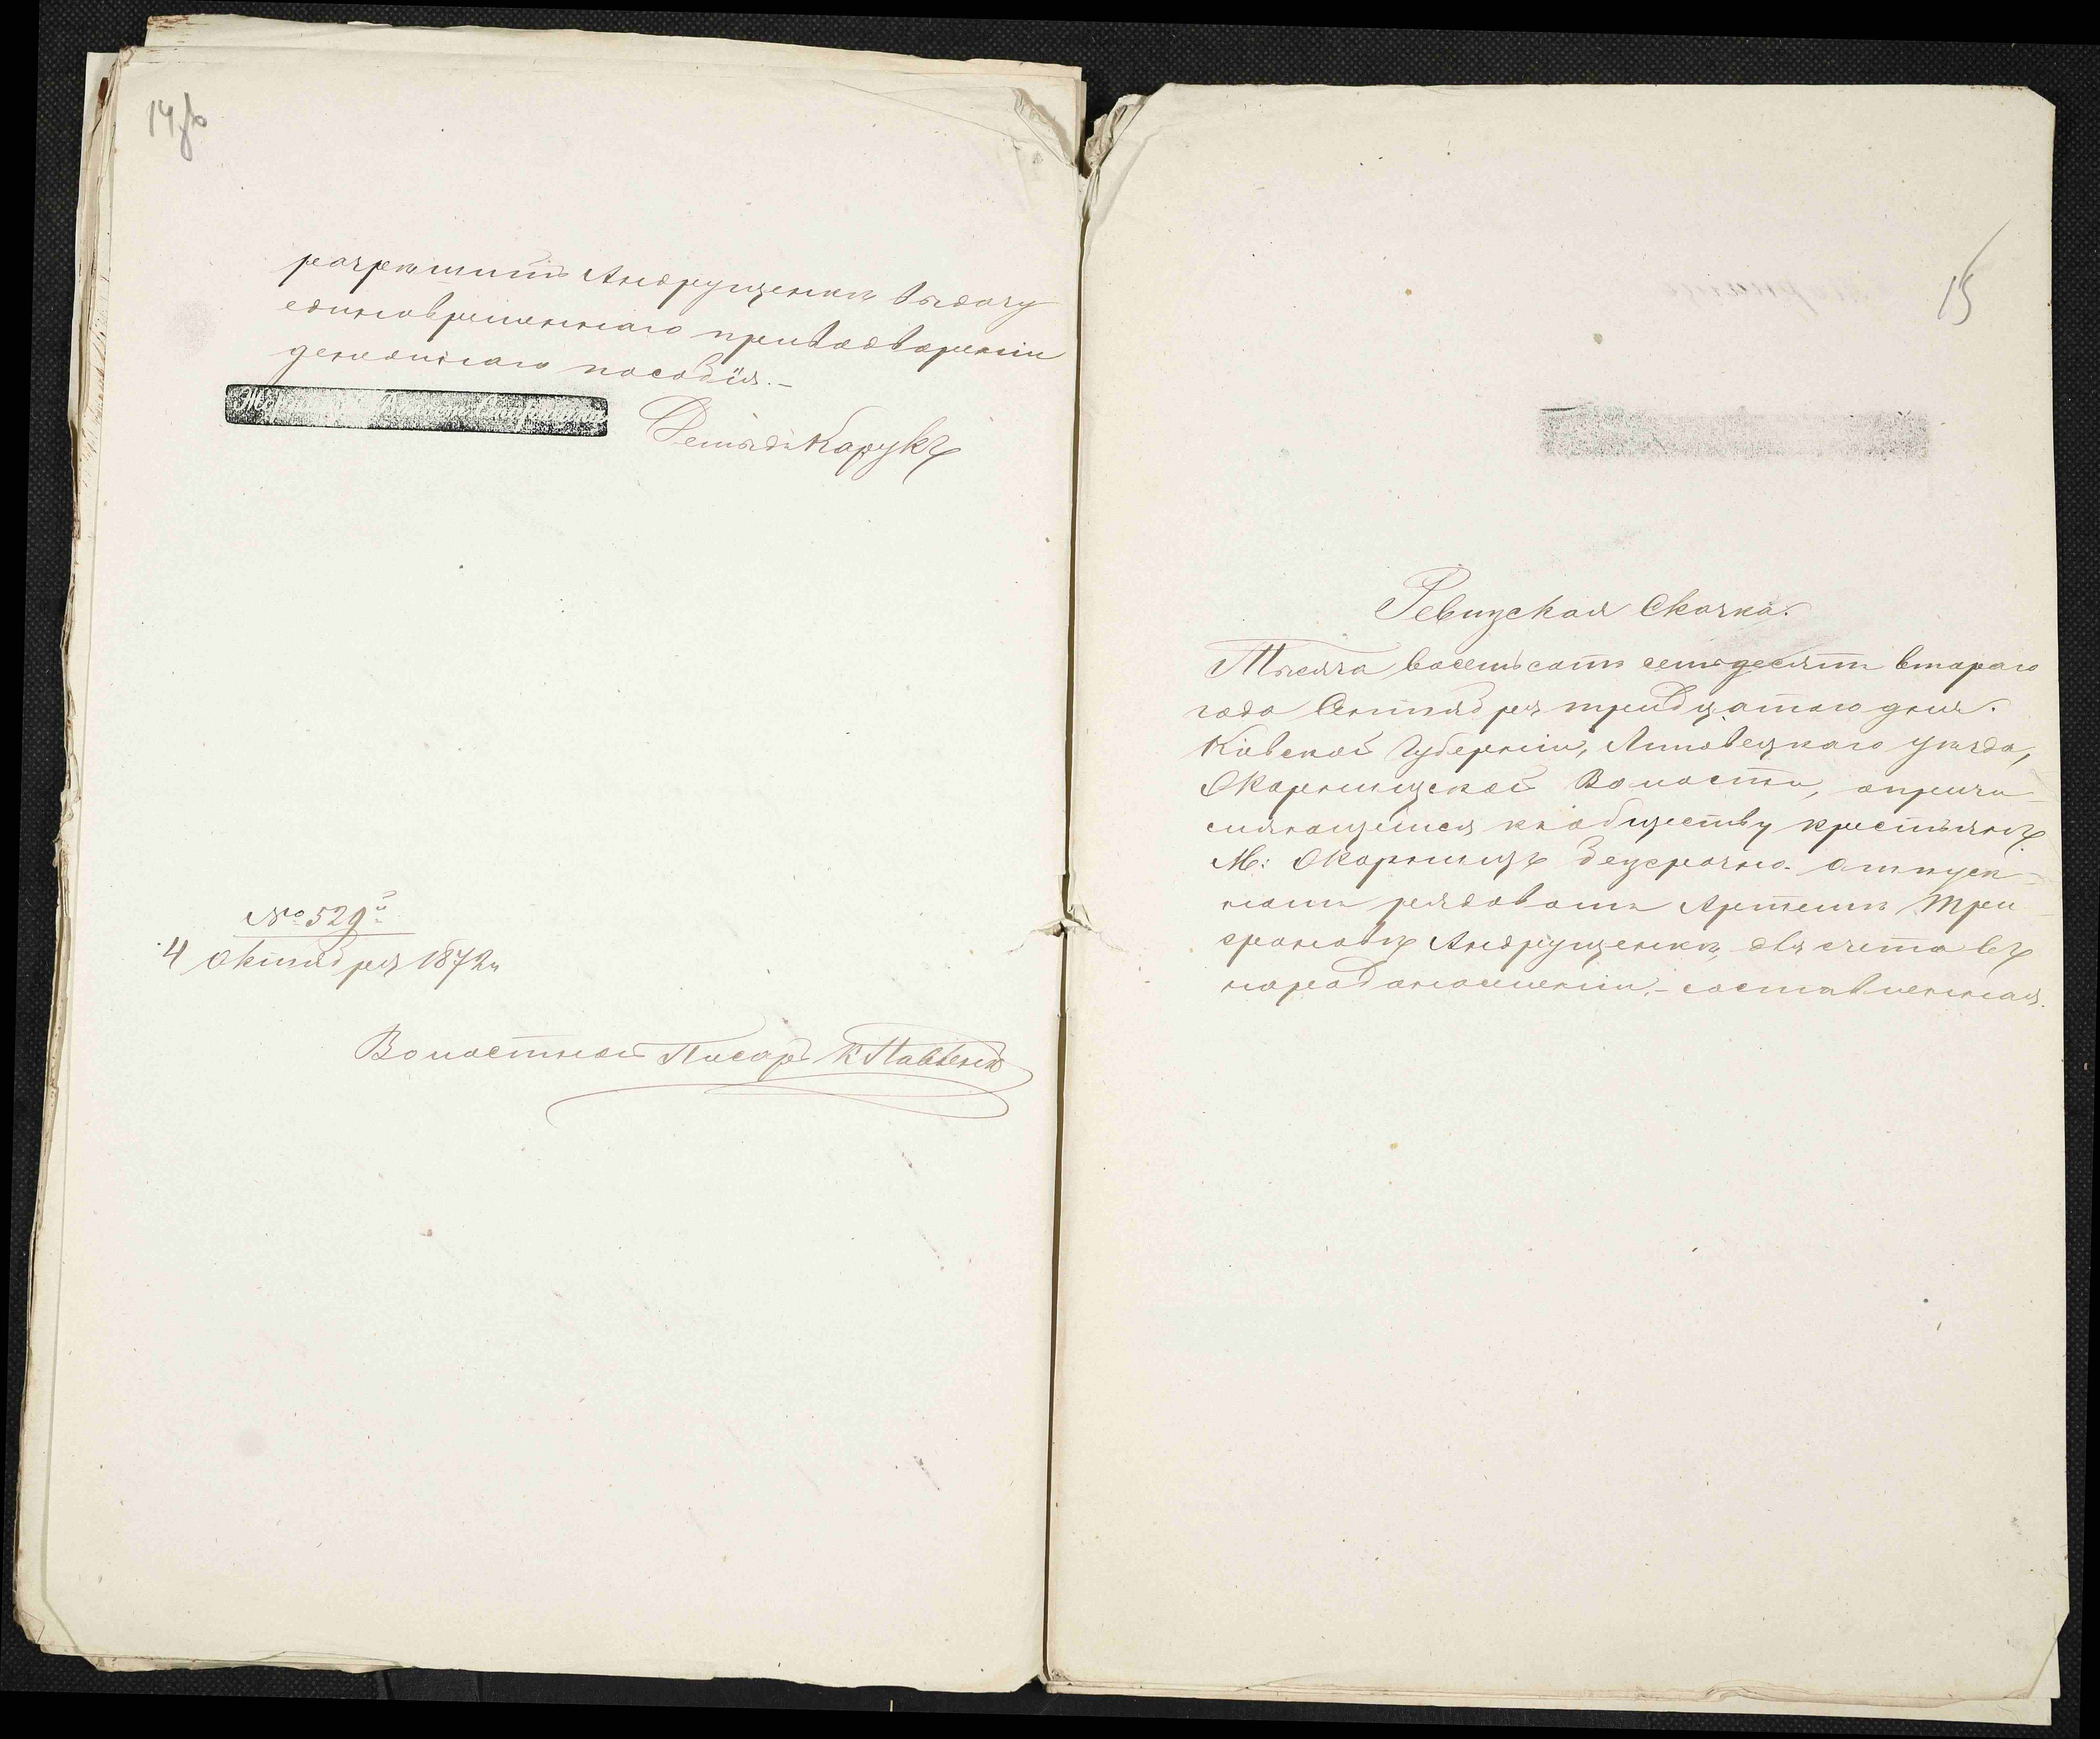 14 об
разрешить Андрущенкѣ выдачу
единовременнаго приводвореніи
денежнаго пособія.-
Демидъ Карукъ
№ 529й
4 октября 1872 г
Волостной Писарь К Павленко
15
Ревизская Сказка.
Тысяча восемьсотъ семьдесятъ втораго
года Сентября тридцатаго дня.
Кіевской Губерніи, Липовецкаго уѣзда,
Скорницкой Волости, опричи-
сляющемся къ обществу крестьянъ
М: безсрочно-отпуск-
номъ рядовомъ Артемѣ Три-
фоновѣ Андрущенкѣ, для счета въ
народонаселеніи,- составленная.